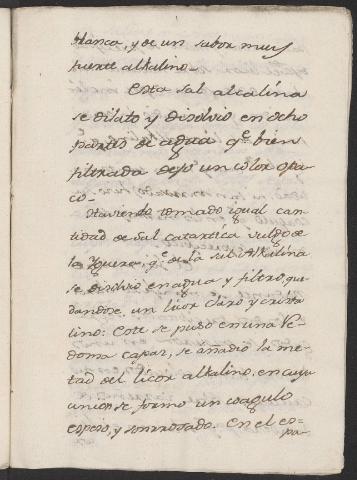 blanca, y de un sabor muy
fuerte alkalino.
Esta sal alcalina
se diluto y disolvio en ocho
partes de agua qe. bien
filtrada dejo un color opa-
co.
Haviendo tomado igual can-
tidad de Sal catartica vulgo de
la Yguera, qe. de la sal Alkalina
se disolvio en agua, y filtro, que
dandose un licor claro y crista
lino: Este se puso en una Ve-
doma capaz, se añadio la me-
tad del licor alkalino, en cuya
union se formo un coagulo
espeso, y sonrrosado. En el es-
pa-